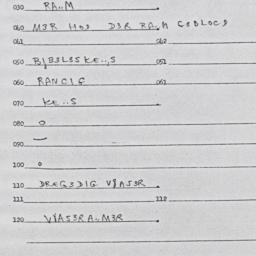 030 RA..M
040 M3R HO3 D3R RA.M G3BLOC3
041 042
050 B|B3L3SKE..,S 051
060 RANCIG 061
070 KE..S
080 O
090 —
100 o
110 DREG3DIG V|AS3R
111 112
120 V|AS3RA..M3R